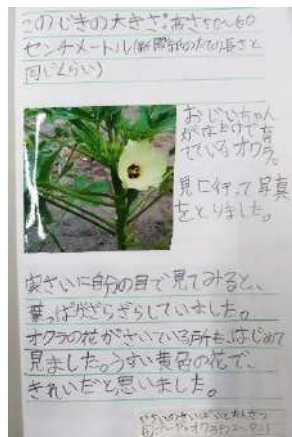 このじきの大きさ:高さ50～60
センチメートル(新聞紙のたての長さと
同じくらい)
おじいちゃん
が
育
てているオクラ。
見に行って写真
をとりました。
実さいに自分の目で見てみると、
葉っぱがざらざらしていました。
オクラの花がさいている所も、はじめて
見ました。うすい黄色の花で、
きれいだと思いました。
やさいのさいばいとかんさつ